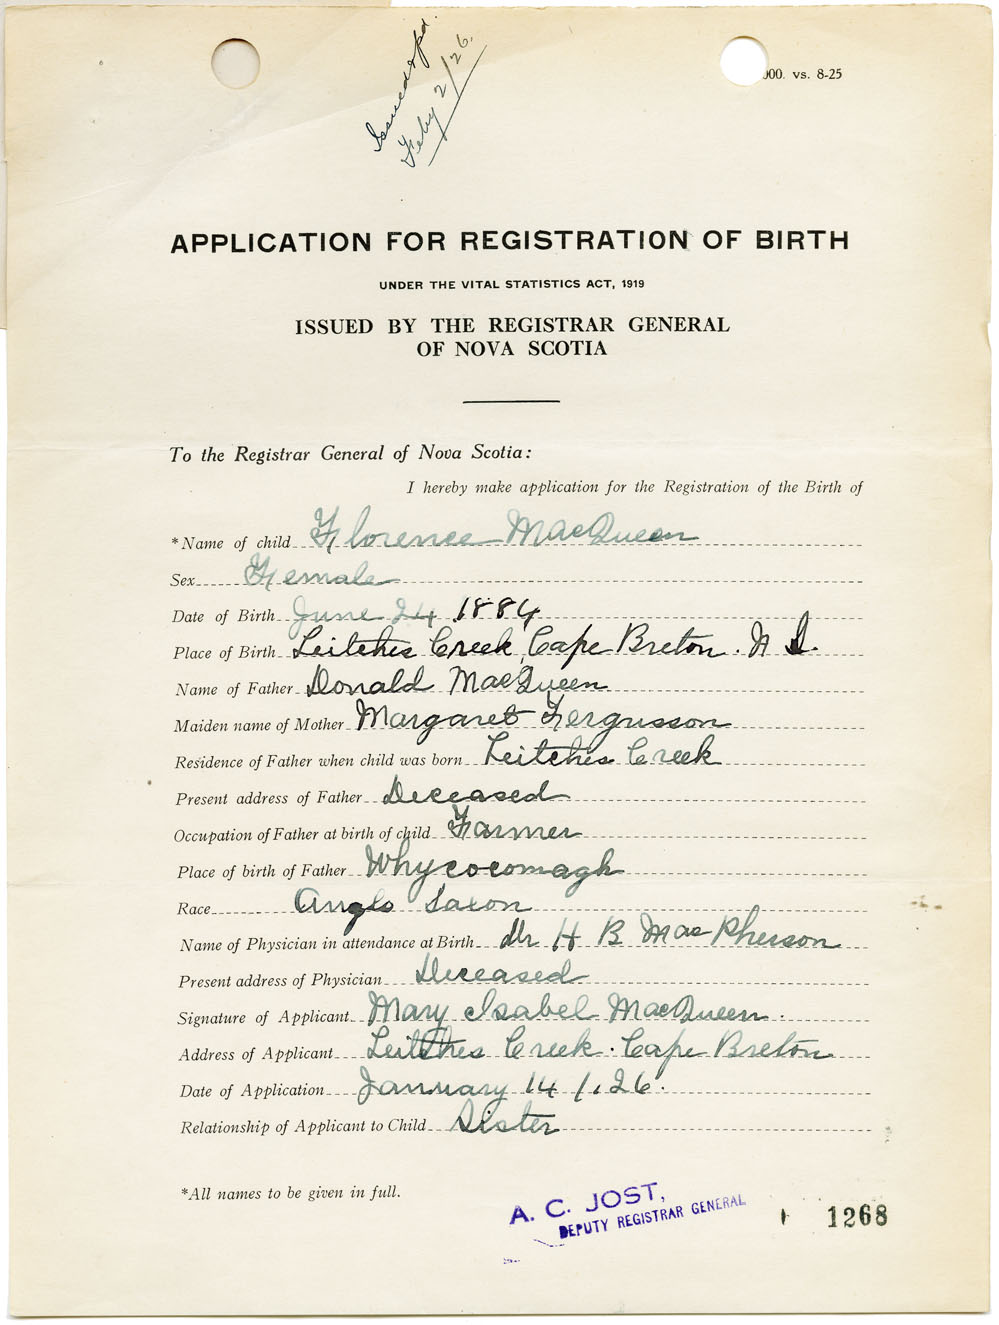 Issued & pd.
Feby 2/26.
000. vs. 8-25
APPLICATION FOR REGISTRATION OF BIRTH
UNDER THE VITAL STATISTICS ACT, 1919
ISSUED BY THE REGISTRAR GENERAL
OF NOVA SCOTIA
To the Registrar General of Nova Scotia:
I hereby make application for the Registration of the Birth of
*Name of child Florence MacQueen
Sex Female
Date of Birth June 24 1884
Place of Birth Leitches Creek, Cape Breton. N S.
Name of Father Donald MacQueen
Maiden name of Mother Margaret Fergusson
Residence of Father when child was born Leitches Creek
Present address of Father Deceased
Occupation of Father at birth of child Farmer
Place of birth of Father Whycocomagh
Race Anglo Saxon
Name of Physician in attendance at Birth Dr H B MacPherson
Present address of Physician Deceased
Signature of Applicant Mary Isabel MacQueen.
Address of Applicant Leitches Creek. Cape Breton
Date of Application January 14 1926.
Relationship of Applicant to Child Sister
*All names to be given in full.
A. C. JOST,
DEPUTY REGISTRAR GENERAL
1268